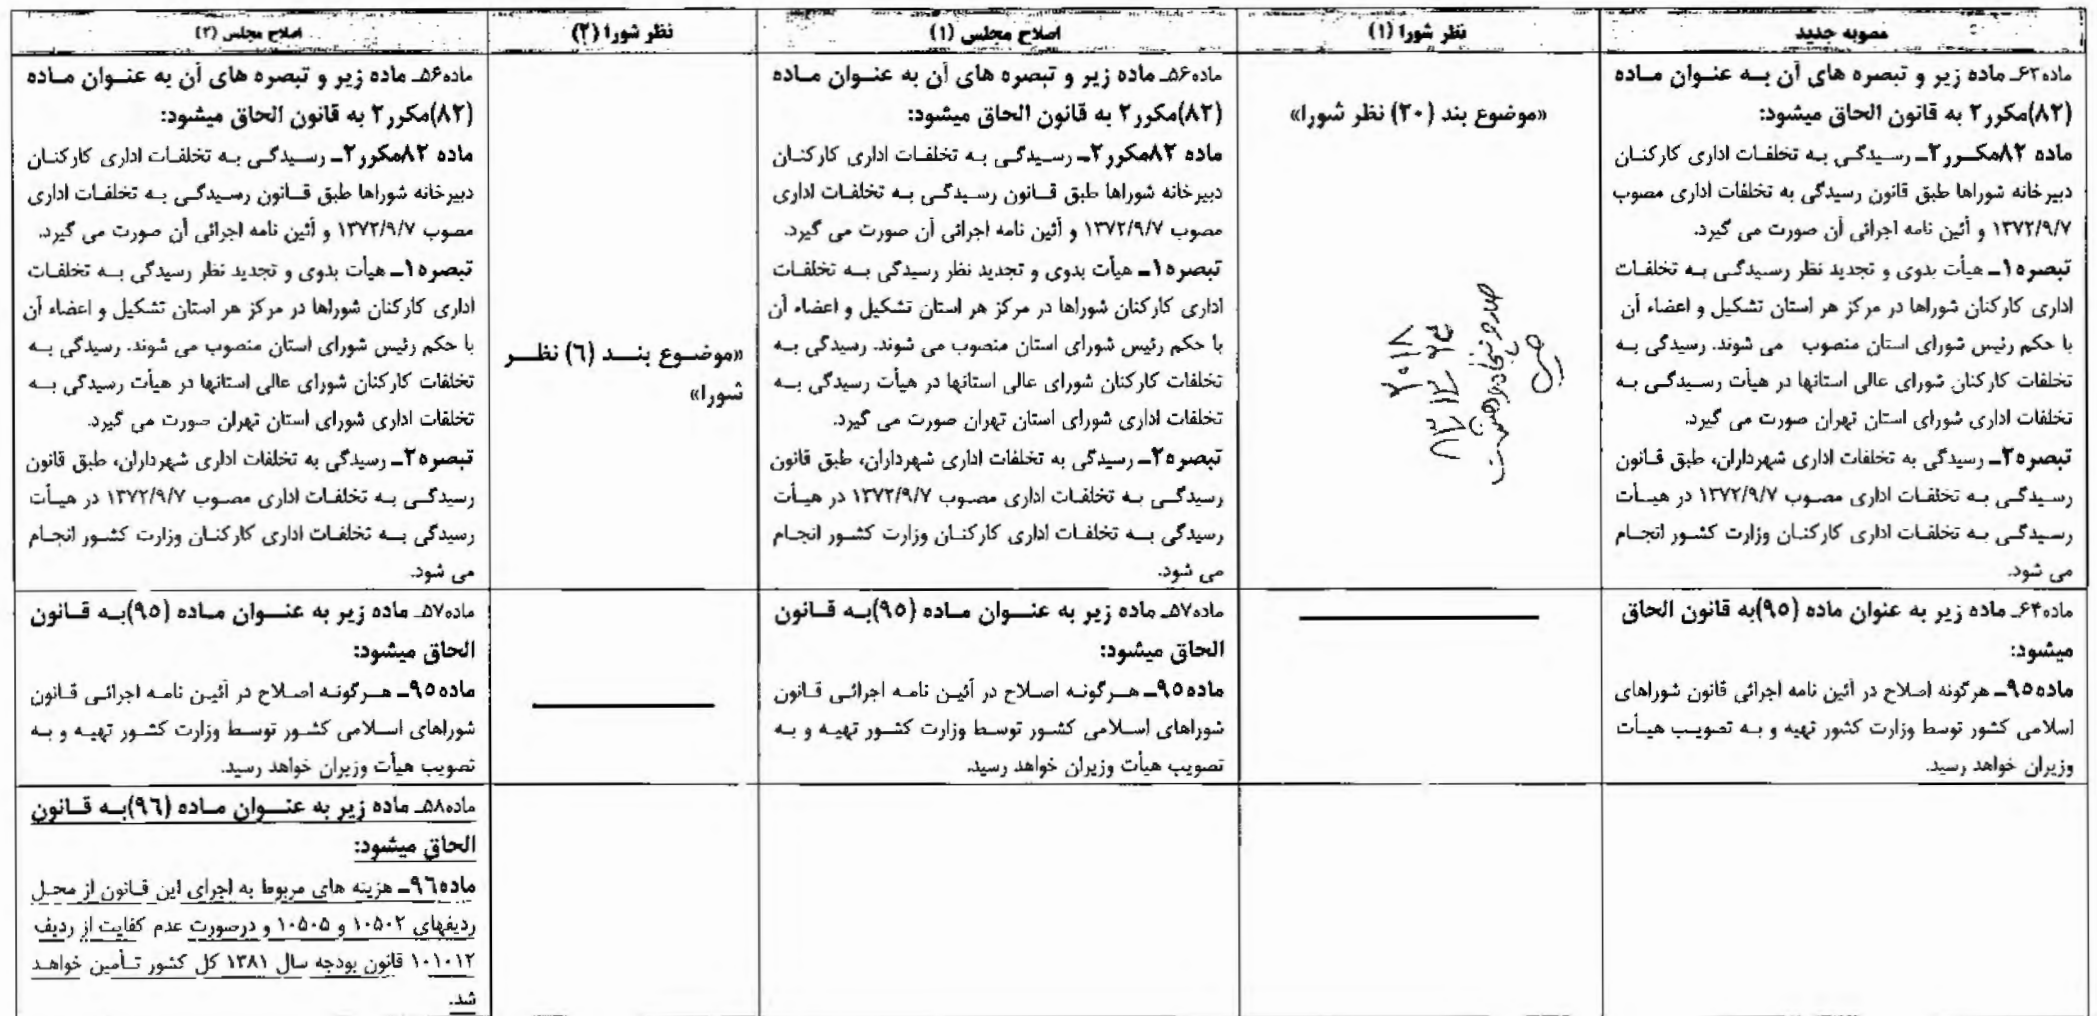 مصوبه جدید
نظر شورا (۱)
اصلاح مجلس (۱)
نظر شورا (۲)
اصلاح مجلس (۲)
ماده۶۳ـ ماده زیر و تبصره های آن بـه عنـوان مـاده
(۸۲)مکرر۲ به قانون الحاق میشود:
ماده ۸۲مکــرر۲ـ رسـیدگـی بـه تخلفـات اداری کارکنـان
دبیرخانه شوراها طبق قانون رسیدگی به تخلفات اداری مصوب
۱۳۷۲/۹/۷ و آئین نامه اجرائی آن صورت می گیرد.
تبصره۱ـ هیأت بدوی و تجدید نظر رسیدگـی بـه تخلفـات
اداری کارکنان شوراها در مرکز هر استان تشکیل و اعضاء آن
با حکم رئیس شورای استان منصوب می شوند. رسیدگی بـه
تخلفات کارکنان شورای عالی استانها در هیأت رسـیدگـی بـه
تخلفات اداری شورای استان تهران صورت می گیرد.
تبصره۲ـ رسیدگی به تخلفات اداری شهرداران، طبق قـانون
رسـیدگـی بـه تخلفـات اداری مصـوب ۱۳۷۲/۹/۷ در هیـأت
رسیدگـی بـه تخلفـات اداری کارکنـان وزارت کشـور انجـام
می شود.
«موضوع بند (۲۰) نظر شورا»
ماده۵۶ـ ماده زیر و تبصره های آن به عنـوان مـاده
(۸۲)مکرر۲ به قانون الحاق میشود:
ماده ۸۲مکرر۲ـ رسـیدگـی بـه تخلفـات اداری کارکنـان
دبیرخانه شوراها طبق قـانون رسیدگـی بـه تخلفـات اداری
مصوب ۱۳۷۲/۹/۷ و آئین نامه اجرائی آن صورت می گیرد.
تبصره۱ـ هیأت بدوی و تجدید نظر رسیدگی بـه تخلفـات
اداری کارکنان شوراها در مرکز هر استان تشکیل و اعضاء آن
با حکم رئیس شورای استان منصوب می شوند. رسیدگی بـه
تخلفات کارکنان شورای عالی استانها در هیأت رسیدگی بـه
تخلفات اداری شورای استان تهران صورت می گیرد.
تبصره۲ـ رسیدگی به تخلفات اداری شهرداران، طبق قانون
رسیدگـی بـه تخلفـات اداری مصـوب ۱۳۷۲/۹/۷ در هیـأت
رسیدگی بـه تخلفـات اداری کارکنـان وزارت کشـور انجـام
می شود.
«موضـوع بنـــد (٦) نظـــر
شورا»
ماده۵۶ـ ماده زیر و تبصره های آن به عنـوان مـاده
(۸۲)مکرر۲ به قانون الحاق میشود:
ماده ۸۲مکرر۲ـ رسـیدگـی بـه تخلفـات اداری کارکنـان
دبیرخانه شوراها طبق قـانون رسیدگـی بـه تخلفـات اداری
مصوب ۱۳۷۲/۹/۷ و آئین نامه اجرائی آن صورت می گیرد.
تبصره۱ـ هیأت بدوی و تجدید نظر رسیدگی بـه تخلفـات
اداری کارکنان شوراها در مرکز هر استان تشکیل و اعضاء آن
با حکم رئیس شورای استان منصوب می شوند. رسیدگی بـه
تخلفات کارکنان شورای عالی استانها در هیأت رسیدگی بـه
تخلفات اداری شورای استان تهران صورت می گیرد.
تبصره۲ـ رسیدگی به تخلفات اداری شهرداران، طبق قانون
رسیدگـی بـه تخلفـات اداری مصـوب ۱۳۷۲/۹/۷ در هیـأت
رسیدگی بـه تخلفـات اداری کارکنـان وزارت کشـور انجـام
می شود.
ماده۶۴ـ ماده زیر به عنوان ماده (۹۵)به قانون الحاق
میشود:
ماده۹۵ـ هرگونه اصلاح در آئین نامه اجرائی قانون شوراهای
اسلامی کشور توسط وزارت کشور تهیه و بـه تصویـب هیـأت
وزیران خواهد رسید.
ماده۵۷ـ ماده زیر به عنـــوان مـــاده (۹۵)بـه قـــانون
الحاق میشود:
ماده۹۵ـ هـرگونـه اصـلاح در آئیـن نامـه اجرائـی قـانون
شوراهای اسـلامی کشـور توسـط وزارت کشـور تهیـه و بـه
تصویب هیأت وزیران خواهد رسید.
ماده۵۷ـ ماده زیر به عنـــوان مـــاده (۹۵)بـه قـــانون
الحاق میشود:
ماده۹۵ـ هـرگونـه اصـلاح در آئیـن نامـه اجرائـی قـانون
شوراهای اسـلامی کشـور توسـط وزارت کشـور تهیـه و بـه
تصویب هیأت وزیران خواهد رسید.
ماده۵۸ـ ماده زیر به عنـــوان مـاده (۹٦)بـه قـــانون
الحاق میشود:
ماده۹٦ـ هزینه های مربوط به اجرای این قـانون از محـل
ردیفهای ۱۰۵۰۲ و ۱۰۵۰۵ و درصورت عدم کفایت از ردیف
۱۰۱۰۱۲ قانون بودجه سال ۱۳۸۱ کل کشور تـأمین خواهـد
شد.